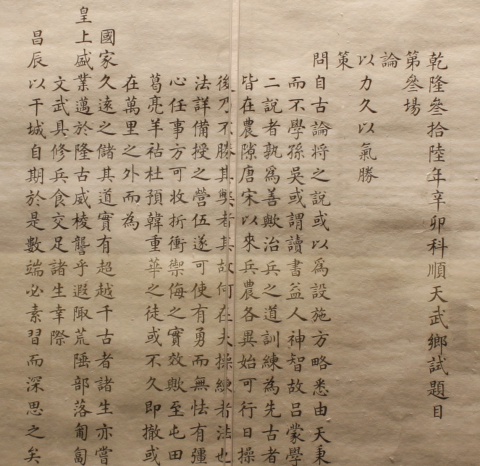 乾隆叄拾陸年辛卯科順天武鄉試題目
第叄場
論
以力久以氣勝
策
問自古論將之說或以爲設施方略悉由天秉
而不學孫吳或謂讀書益人神智故呂蒙學
二說者孰爲善歟治兵之道訓練爲先古者
皆在農隙唐宋以來兵農各異始可行日操
後乃不勝其弊者其故何在夫操練者法也
法詳備授之營伍遂可使有勇而無怯有彊
心任事方可收折衝禦侮之實效歟至屯田
葛亮羊祜杜預韓重華之徒或不久即撤或
在萬里之外而為
國家久遠之儲其道實有超越千古者諸生亦嘗
皇上盛業邁於隆古威棱讋乎遐陬荒陲部落匍匐
文武具修兵食交足諸生幸際
昌辰以干城自期於是數端必素習而深思之矣